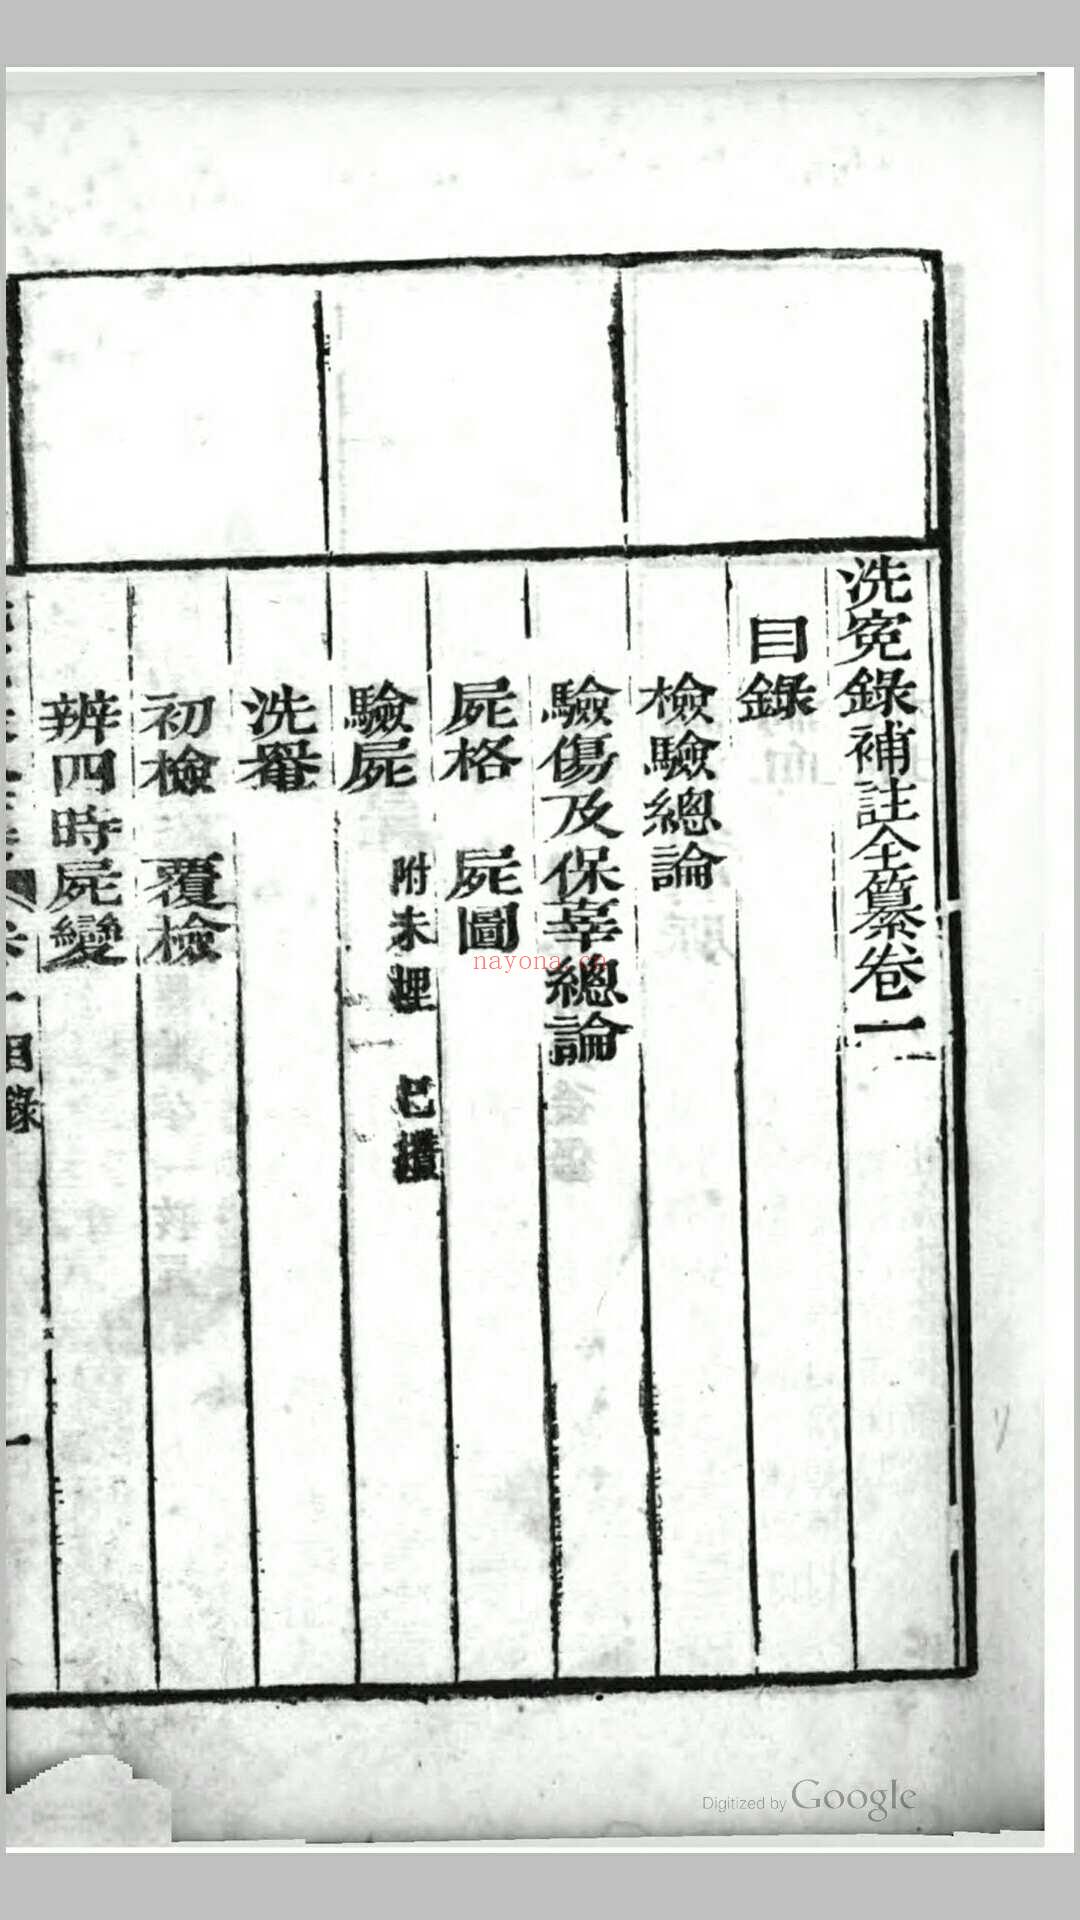 洗寃錄補註全纂卷一
目錄
檢驗總論
驗傷及保辜總論
屍格 屍圖
驗屍 附未埋 已攢
洗罨
初檢 覆檢
辨四時屍變
目錄 一
nayona.cn
Digitized by Google